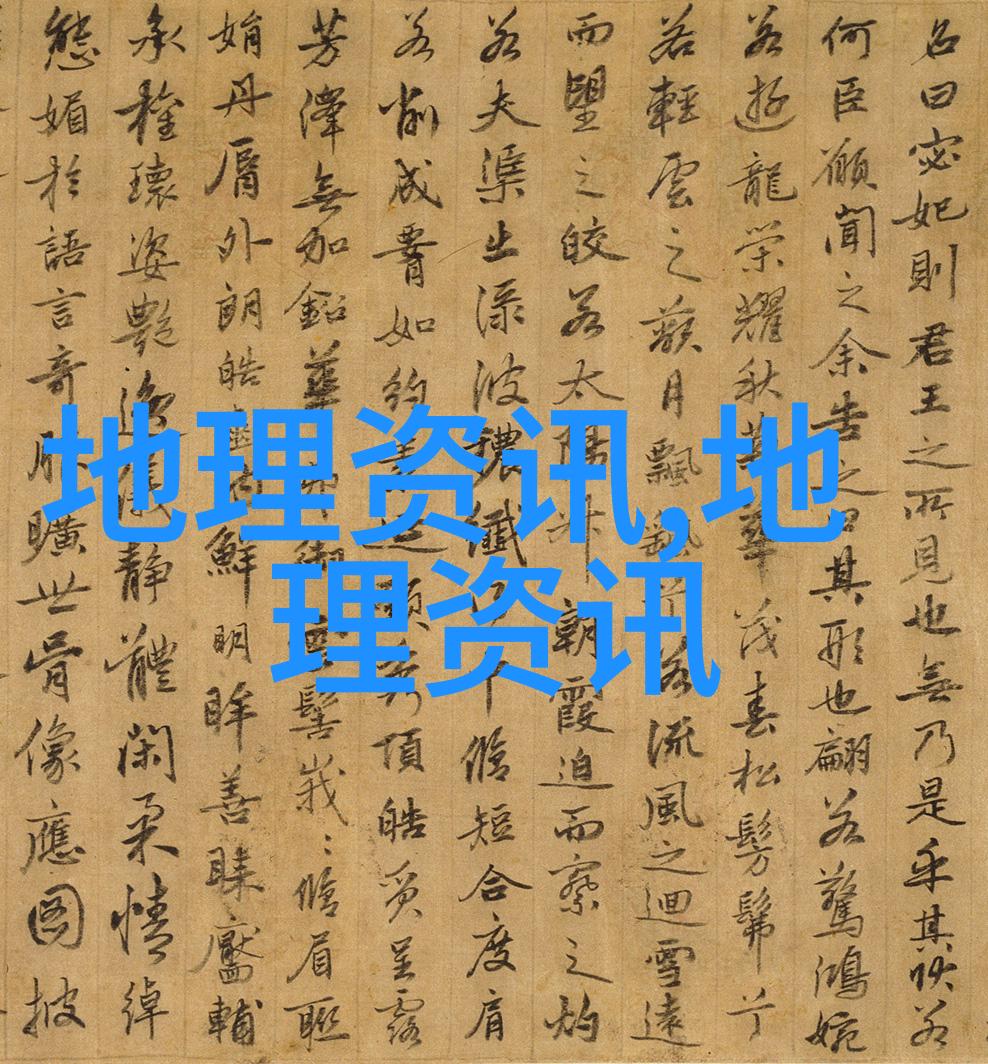 地理资讯,地
理资讯
名曰宓妃則君王之所見也無乃是乎其狀若
何臣願聞之余告之曰其形也翩若驚鴻婉
若遊龍榮耀秋菊華茂春松髣髴兮
若輕雲之蔽月飄飖兮若流風之迴雪遠
而望之皎若太陽升朝霞迫而察之灼
若夫渠出渌波穠纖脩短合度肩
若削成腰如約素延頸秀項皓質呈露
芳澤無加鉛華弗御雲髻峩〻脩眉聯
娟丹脣外朗皓齒内鮮明眸善睞靨輔
承權瓌姿艷逸儀静體閑柔情綽
態媚於語言奇服曠世骨像應圖披